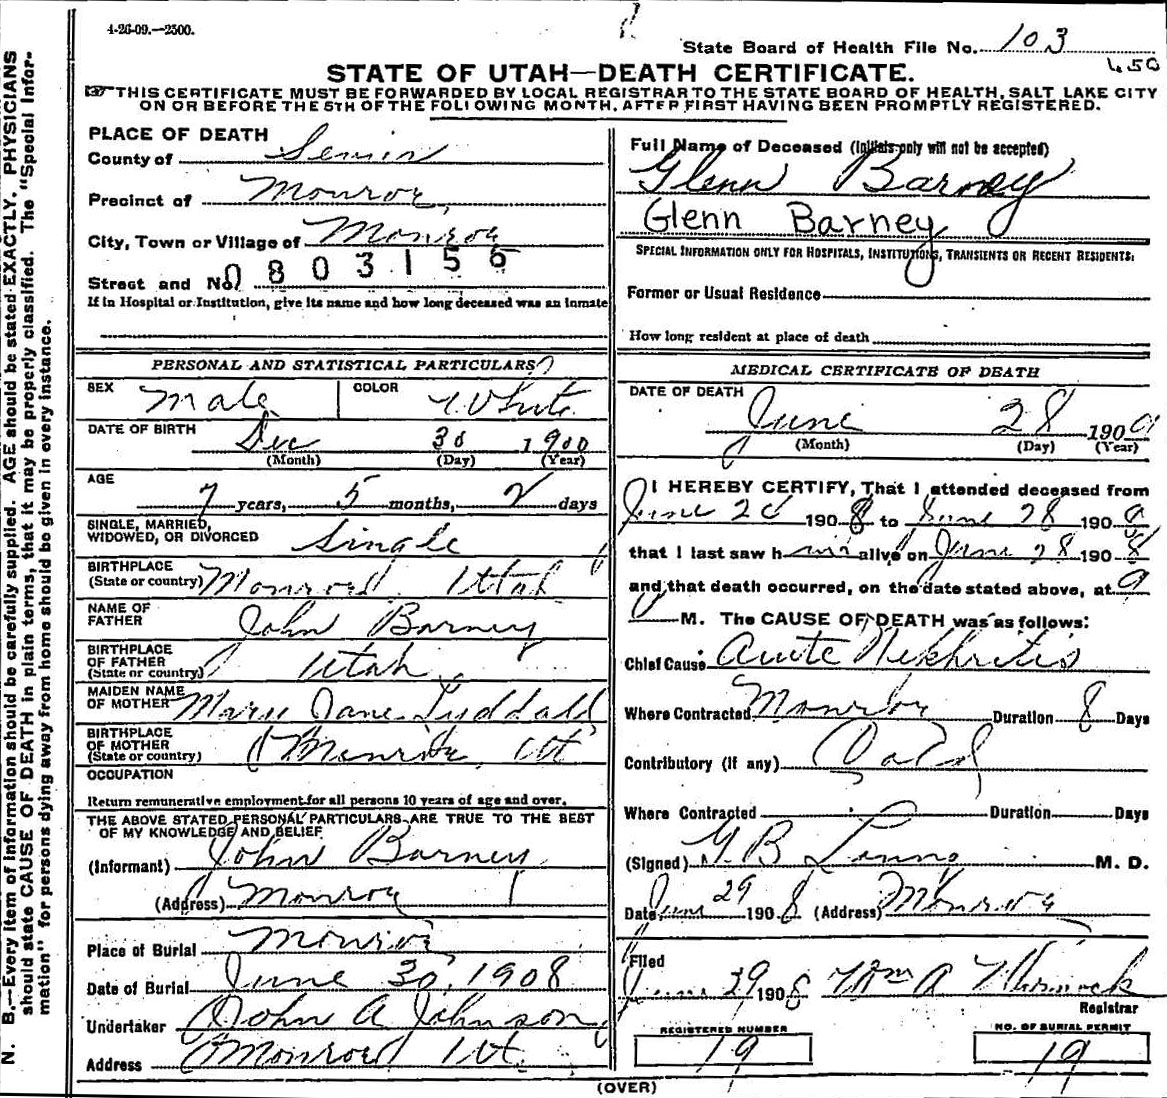 4-26-09.—2500.
State Board of Health File No. 103
450
STATE OF UTAH—DEATH CERTIFICATE.
THIS CERTIFICATE MUST BE FORWARDED BY LOCAL REGISTRAR TO THE STATE BOARD OF HEALTH, SALT LAKE CITY
ON OR BEFORE THE 5TH OF THE FOLLOWING MONTH, AFTER FIRST HAVING BEEN PROMPTLY REGISTERED.
N. B.—Every item of information should be carefully supplied. AGE should be stated EXACTLY. PHYSICIANS
should state CAUSE OF DEATH in plain terms, that it may be properly classified. The "Special Infor-
mation" for persons dying away from home should be given in every instance.
PLACE OF DEATH
County of Sevier
Precinct of Monroe
City, Town or Village of Monroe
Street and No. 0803156
If in Hospital or Institution, give its name and how long deceased was an inmate
PERSONAL AND STATISTICAL PARTICULARS
SEX Male COLOR White
DATE OF BIRTH Dec 30 1900
(Month) (Day) (Year)
AGE 7 years, 5 months, 2 days
SINGLE, MARRIED,
WIDOWED, OR DIVORCED Single
BIRTHPLACE
(State or country) Monroe Utah
NAME OF
FATHER John Barney
BIRTHPLACE
OF FATHER
(State or country) Utah
MAIDEN NAME
OF MOTHER Mary Jane
BIRTHPLACE
OF MOTHER
(State or country) Monroe, Ut
OCCUPATION
Return remunerative employment for all persons 10 years of age and over.
THE ABOVE STATED PERSONAL PARTICULARS ARE TRUE TO THE BEST
OF MY KNOWLEDGE AND BELIEF
(Informant) John Barney
(Address) Monroe
Place of Burial Monroe
Date of Burial June 30, 1908
Undertaker John A Johnson
Address Monroe Ut.
Full Name of Deceased (Initials only will not be accepted)
Glenn Barney
Glenn Barney
SPECIAL INFORMATION ONLY FOR HOSPITALS, INSTITUTIONS, TRANSIENTS OR RECENT RESIDENTS:
Former or Usual Residence
How long resident at place of death
MEDICAL CERTIFICATE OF DEATH
DATE OF DEATH
June 28 190
(Month) (Day) (Year)
I HEREBY CERTIFY, That I attended deceased from
June 20 1908 to June 28 190
that I last saw him alive on June 28 1908
and that death occurred, on the date stated above, at 9
M. The CAUSE OF DEATH was as follows:
Chief Cause Acute Nephritis
Where Contracted Monroe Duration 8 Days
Contributory (if any) Cold
Where Contracted Duration Days
(Signed) G. B. M. D.
Date June 29 1908 (Address) Monroe
Filed
June 29 1908 Wm A
Registrar
REGISTERED NUMBER
19
NO. OF BURIAL PERMIT
19
(OVER)